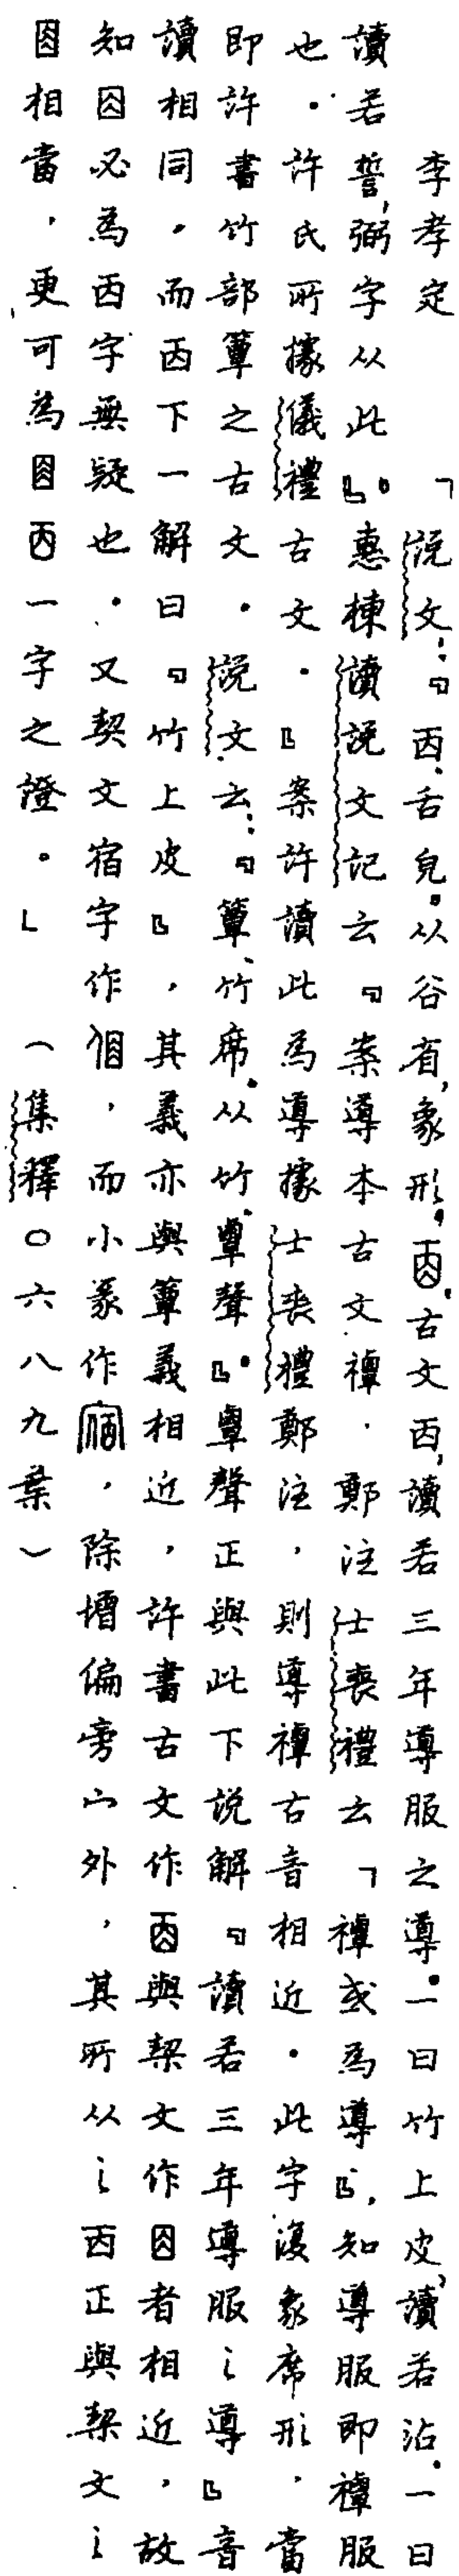 李孝定　「說文：『㐁、舌皃。从谷省，象形。𠀬，古文㐁，讀若三年導服之導。一曰竹上皮，讀若沾。一曰
讀若誓，弼字从此』。惠棟讀說文記云『案導本古文禫．鄭注士喪禮云「禫或為導』，知導服即禫服
也．許氏所據儀禮古文．』案許讀此為導據士喪禮鄭注，則導禫古音相近．此字復象席形，當
即許書竹部簟之古文．說文云：『簟、竹席。从竹覃聲』。覃聲正與此下說解『讀若三年導服之導』音
讀相同．而㐁下一解曰『竹上皮』，其義亦與簟義相近，許書古文作𠀬與栔文作者相近，故
知必為㐁字無疑也．又栔文宿字作，而小篆作，除增偏旁宀外，其所从之㐁正與栔文之
相當，更可為㐁一字之證。」（集釋〇六八九葉）